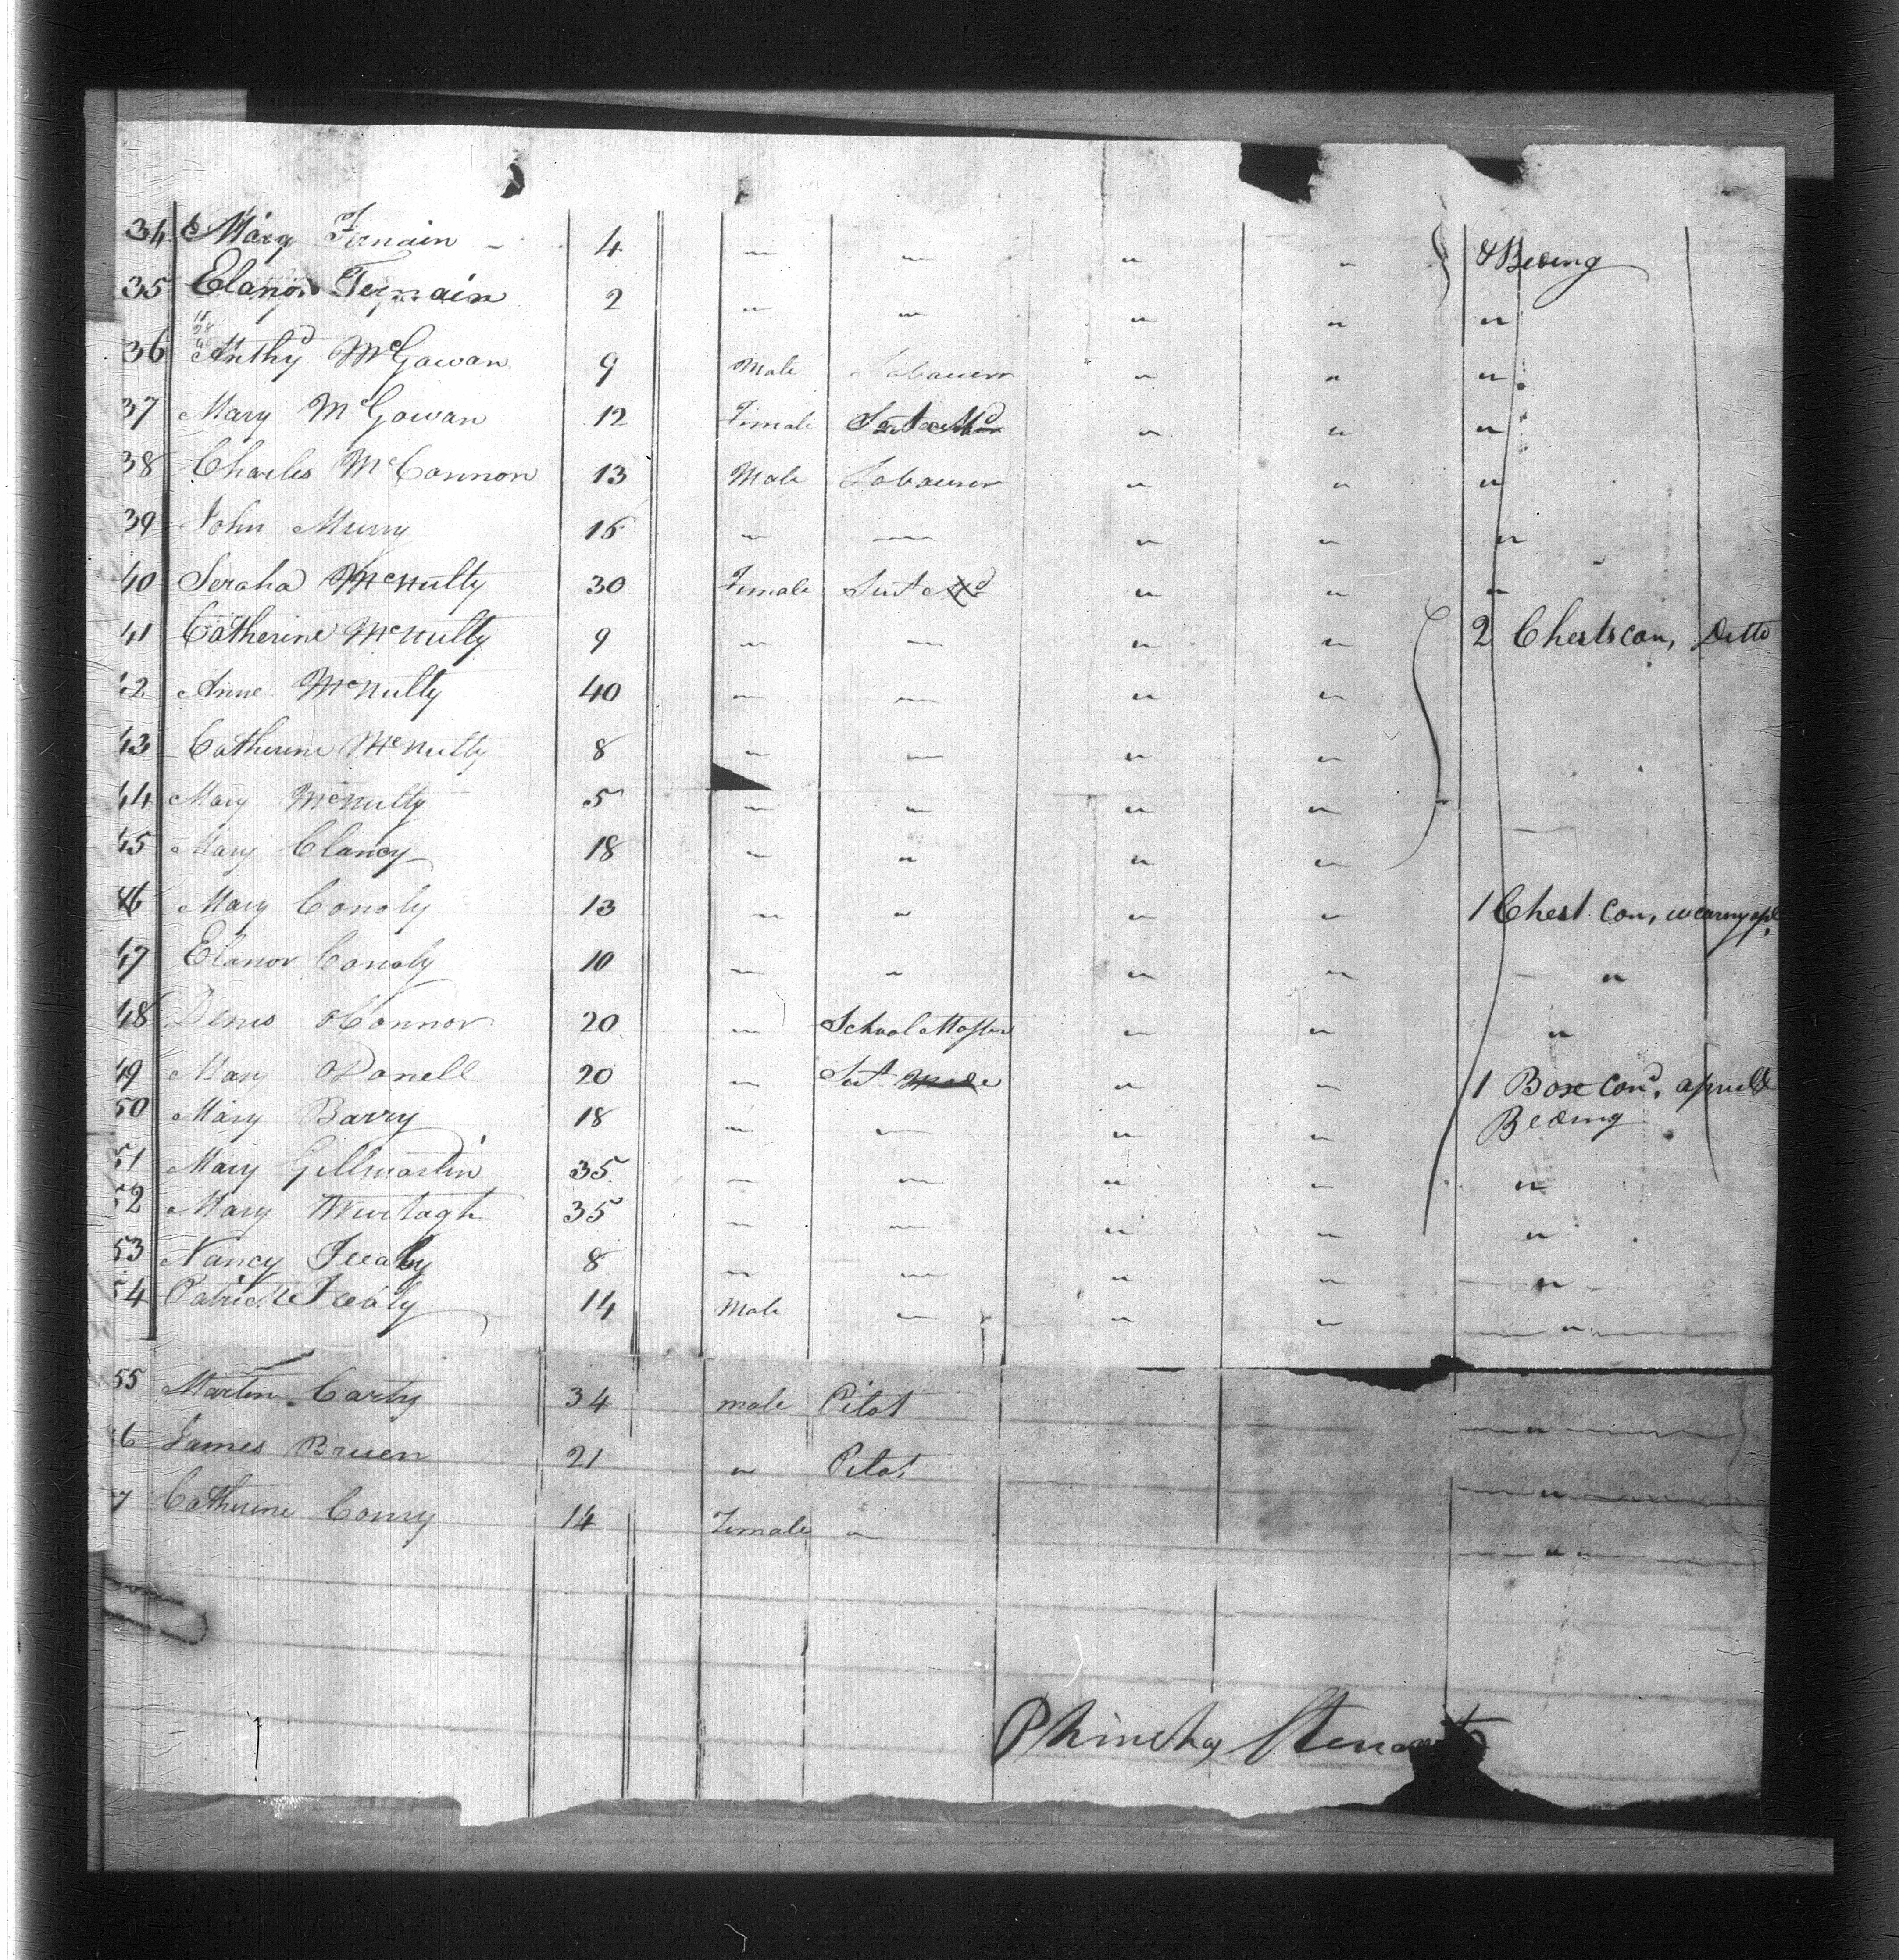 34 Mary Ternain - 4 " " " " & Beding
35 Elanor Ternain 2 " " " " "
36 Anthy McGawan 9 Male Labaurer " " "
37 Mary McGowan 12 Female " " "
38 Charles McConnon 13 Male Labaurer " " "
39 John Murry 15 " " " " "
40 Seraha McNulty 30 Female " " "
41 Catherine McNulty 9 " " " " 2 Chests con, Ditto
42 Anne McNulty 40 " " " "
43 Catherine McNulty 8 " " " "
44 Mary McNulty 5 " " " "
45 Mary Clancy 18 " " " "
46 Mary Conoly 13 " " " " 1 Chest Con, wearing apl
47 Elanor Conoly 10 " " " " "
48 Denis OConnor 20 " School Master " " "
49 Mary ODonell 20 " " " 1 Box Cond,
50 Mary Barry 18 " " " " Beding
51 Mary Gillmartin 35 " " " " "
52 Mary Murtagh 35 " " " " "
53 Nancy 8 " " " " "
54 Patrick 14 Male " " " "
55 Martin Carty 34 male Pilot "
6 James Bruen 21 " Pilot "
7 Catherine Conry 14 Female " "